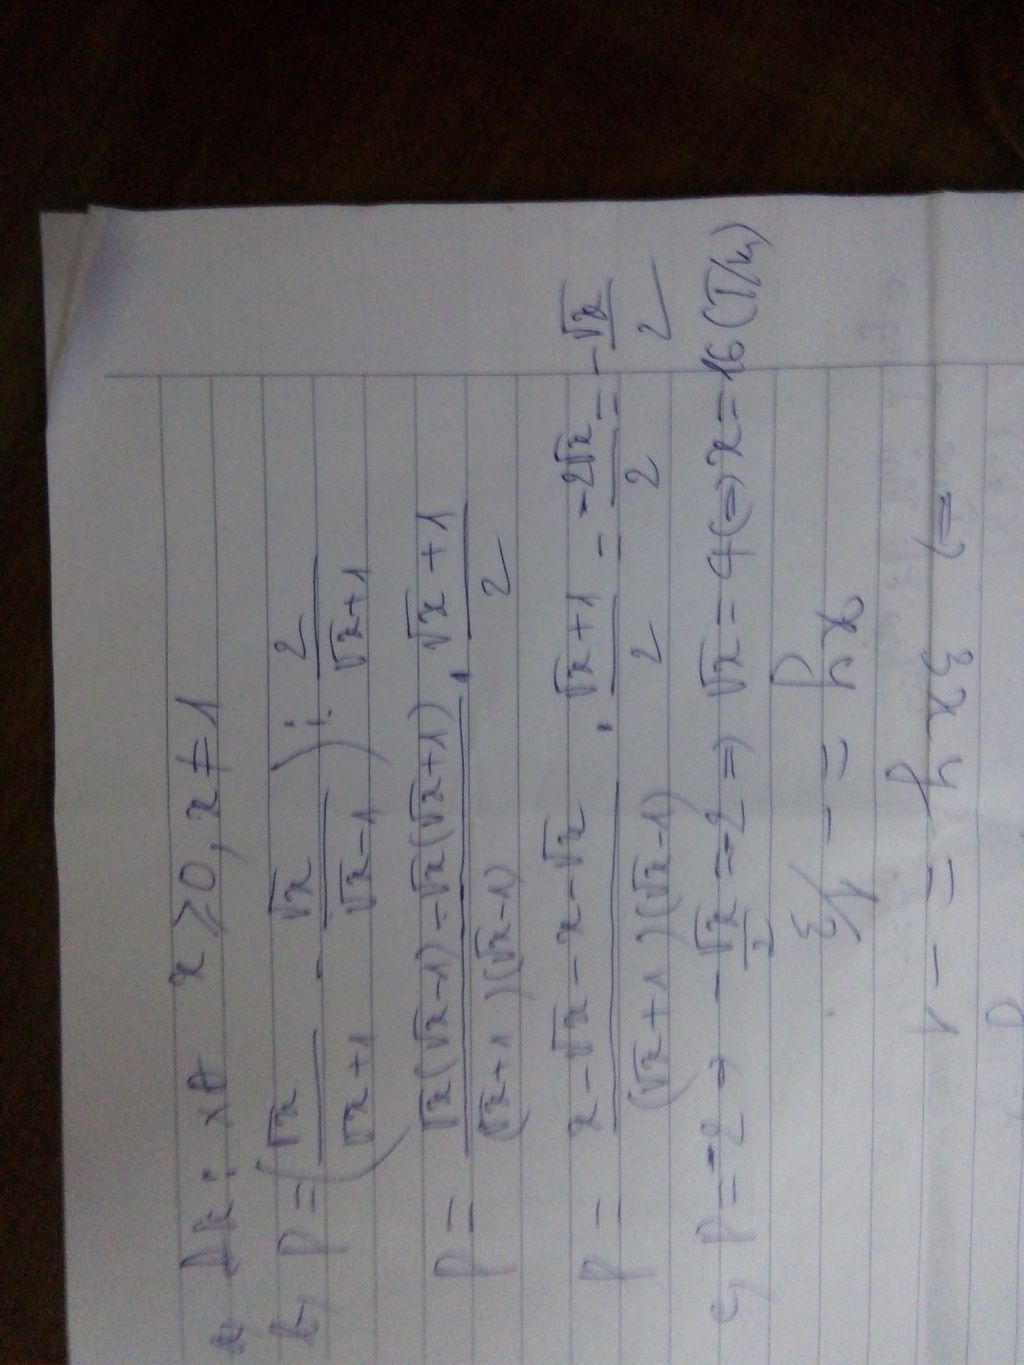 a, Đk: xđ x ≥ 0, x ≠ 1
b, P = (√x/(√x+1) - √x/(√x-1)) : 2/(√x+1)
P = (√x(√x-1) - √x(√x+1))/((√x+1)(√x-1)) . (√x+1)/2
P = (x-√x-x-√x)/((√x+1)(√x-1)) . (√x+1)/2 = -2√x/2 = -√x/2
c, P = -2 → -√x/2 = -2 => √x = 4 (=) x = 16 (T/m)